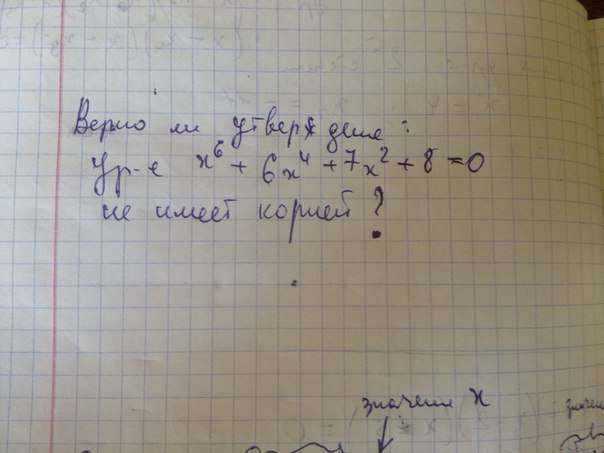 Верно ли утверждение:
Ур-е x⁶ + 6x⁴ + 7x² + 8 = 0
не имеет корней?
значение x